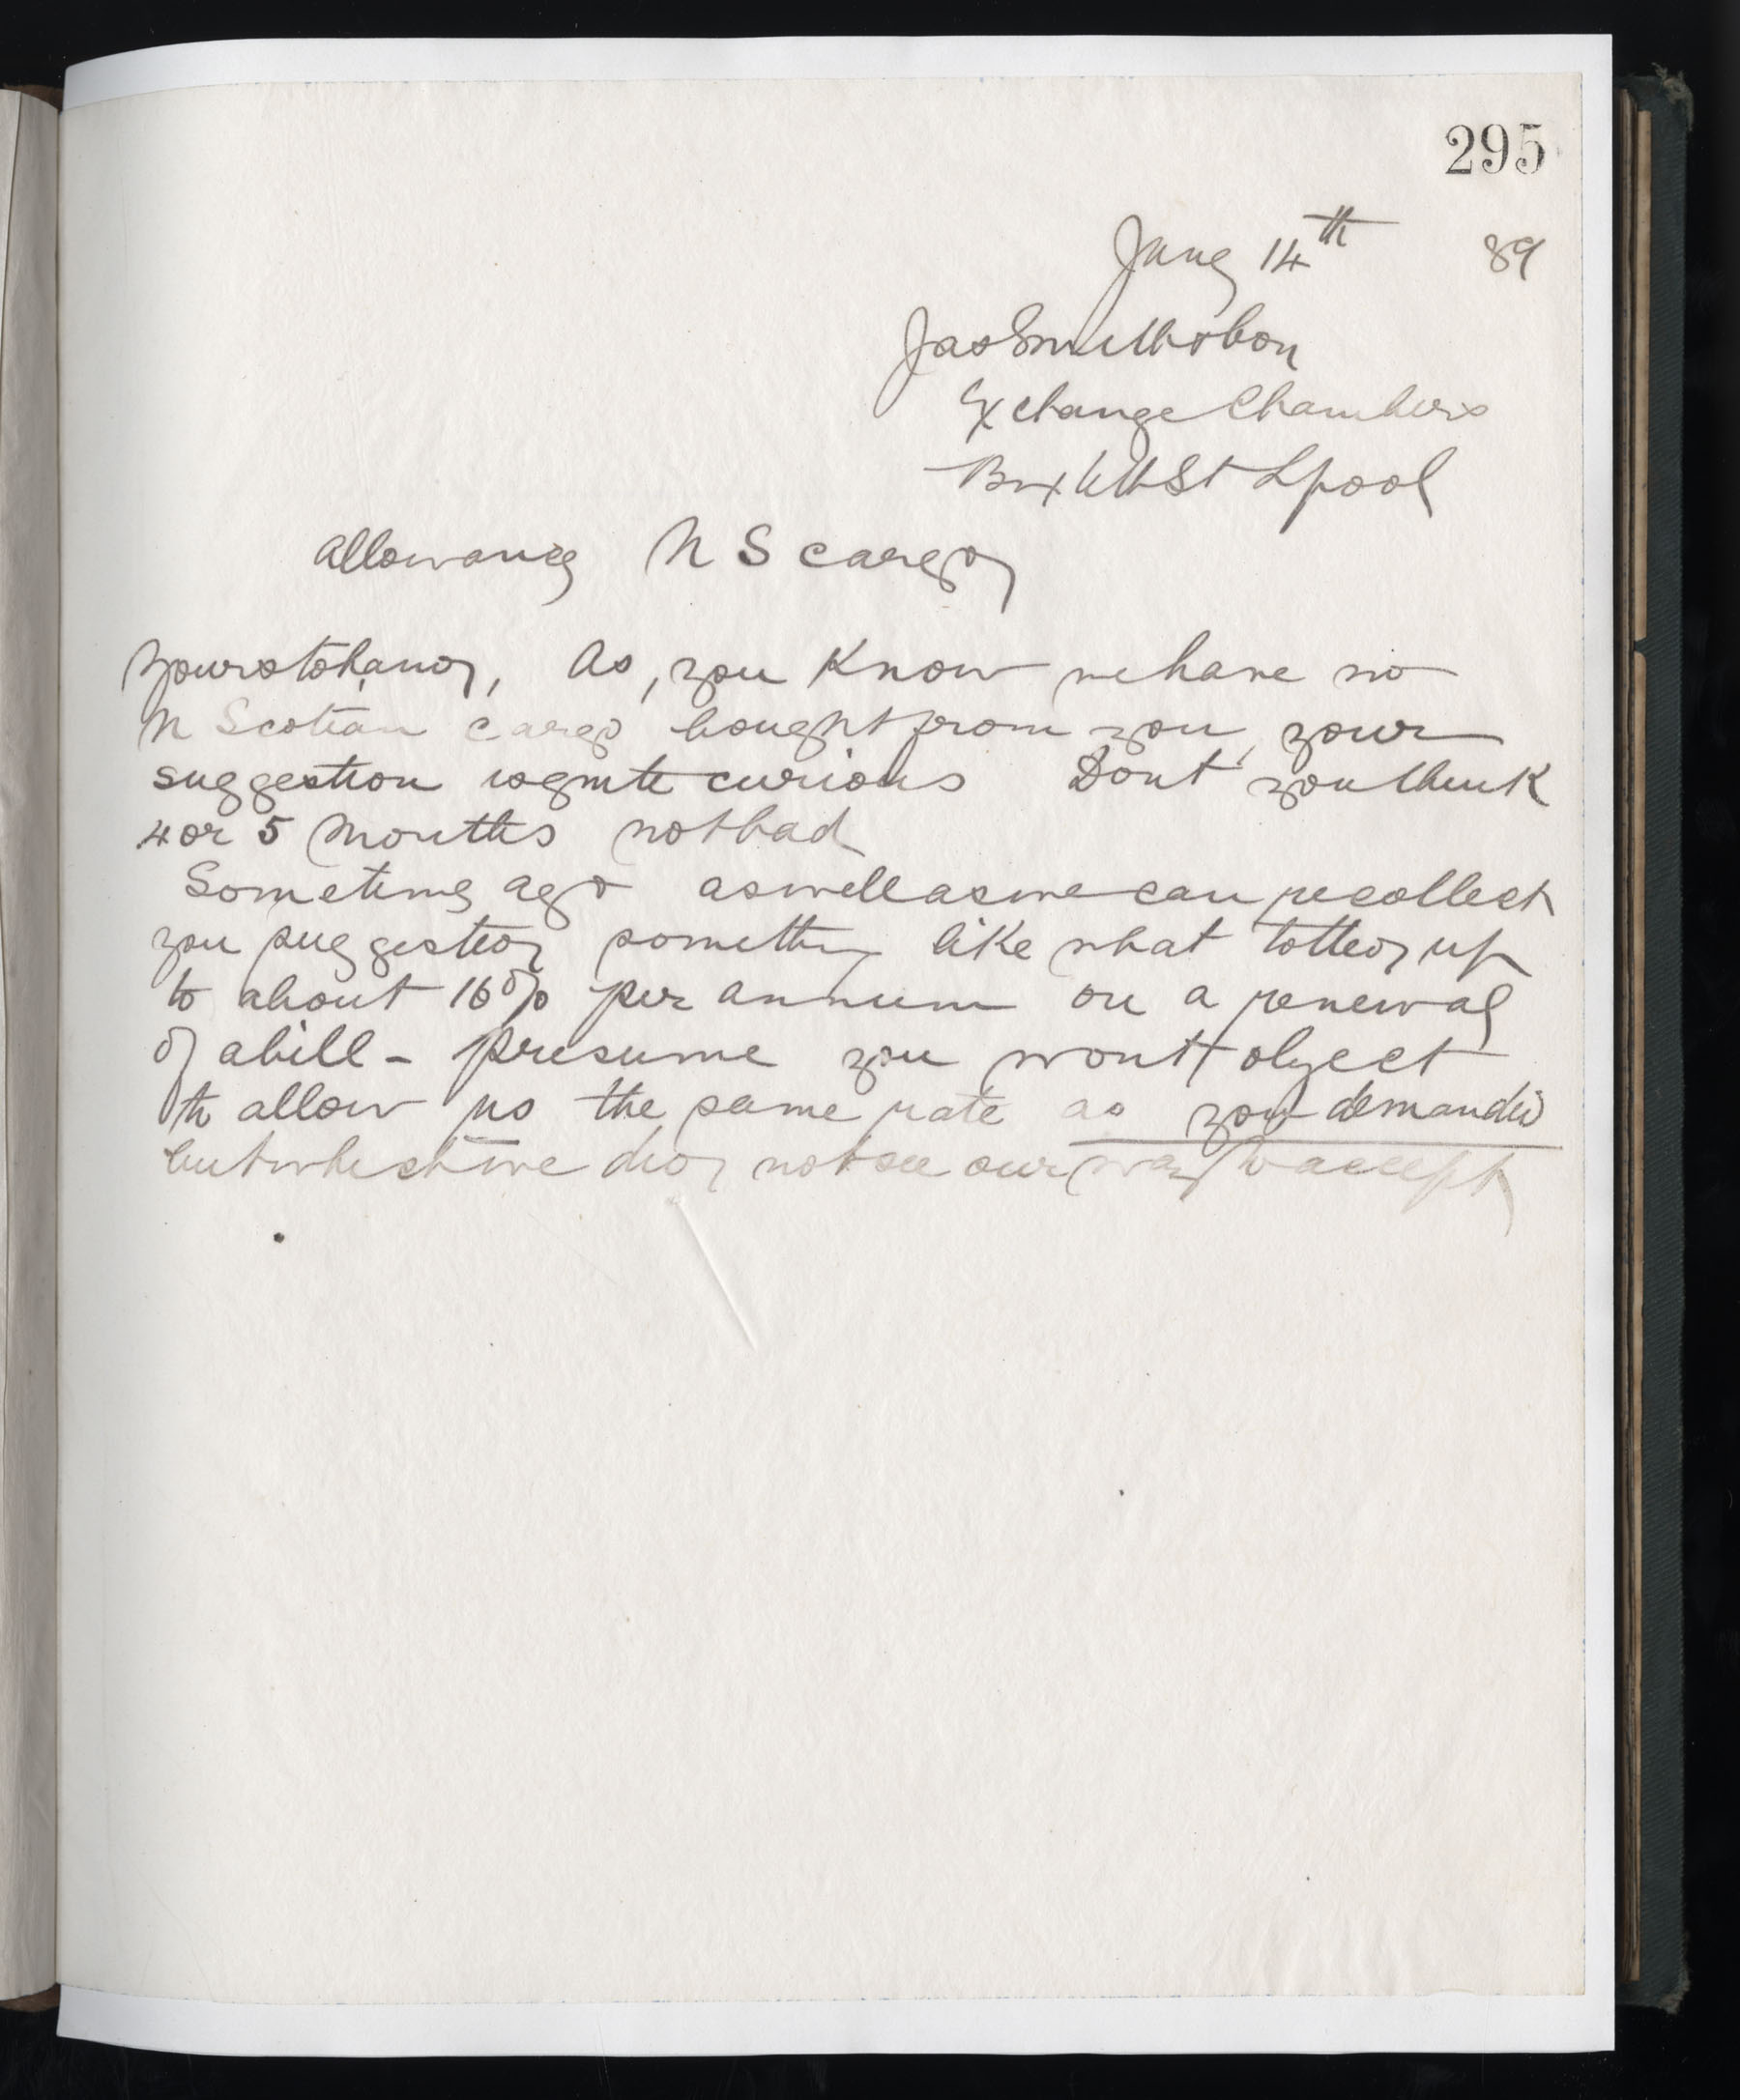 295
Jany 14th 89
Jas Smith & Son
Exchange Chambers
Bixteth St Lpool
Allowance N S cargo
Yours to hand, As, you know we have no
N Scotian cargo bought from you, your
suggestion is quite curious Dont you think
4 or 5 months not bad
Sometime ago as well as we can recollect
you suggested something like what totted up
to about 16% per annum on a renewal
of a bill - presume you wont object
to allow us the same rate as you demanded
but which we did not see our way to accept